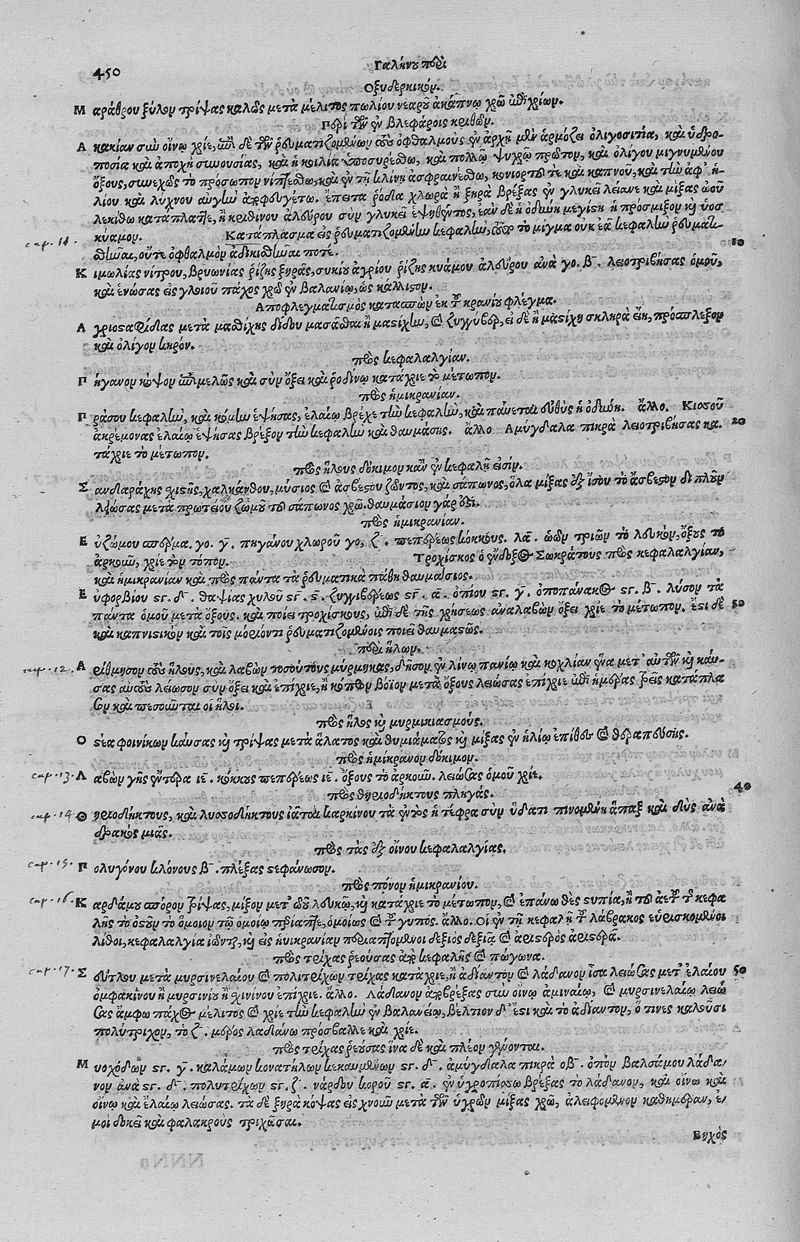 450
Γαλήνου περὶ
Ὀξυδερκικόμ.
Μ αράθρου ξύλομ τρίψας καλῶς μετὰ μέλιτος πωλίου νεαροῦ ἀκάπνῳ χρῶ
Περὶ τῶν ἐν βλεφάροις κριθῶμ.
Α κακίαν σὺν οἴνῳ χρίε, ἐπὶ δὲ τῶν ῥευματιζομένων τοὺς ὀφθαλμοὺς ἐν ἀρχῇ μὲν ἁρμόζει ὀλιγοσιτία, καὶ ὑδρο-
ποσία καὶ ἀποχὴ συνουσίας, καὶ ἡ κοιλία ὑποσυρέσθω, καὶ πολλῷ ψυχρῷ πρῶτομ, καὶ ὀλίγου μιγνυμένου
ὄξους, συνεχῶς τὸ πρόσωπομ νιπτέσθω, καὶ ἐν τῇ κλίνῃ ἀσφραινέσθω, κονιορτὸμ τε καὶ καπνοῦ, καὶ τὴν ἀφ' ἡ-
λίου καὶ λύχνου αὐγὴν ἀποφευγέτω. ἔπειτα ῥόδια χλωρὰ ἢ ξηρὰ βρέξας ἐν γλυκεῖ λείανε καὶ μίξας ὠοῦ
λεκίθῳ κατάπλασσε, ἢ κρίθινομ ἄλευρομ σὺμ γλυκεῖ ἑψηθέντος, ἐὰν δὲ ἡ ὀδύνη μεγίστη ᾖ πρόσμιξομ κ̀ ὑοσ-
κύαμομ. Κατάπλασμα εἰς ῥευματιζομένην κεφαλήν, ὑπὲρ τὸ μῖγμα οὐκ ἐᾷ κεφαλὴν ῥευματι-
σθῆναι, οὔτε ὀφθαλμὸμ ἀδικηθῆναι ποτέ.
cap. 14.
10
Κ ιμωλίας νίτρου, βρυωνίας ῥίζης ξηρᾶς, σικύου ἀγρίου ῥίζης κυάμου ἀλεύρου ἀνὰ γο. β‾. λειοτριβήσας ὁμοῦ,
καὶ ἑνώσας εἰς γλοιοῦ πάχος χρῶ ἐν βαλανίῳ, ὡς κάλλιστομ.
Ἀποφλεγματισμὸς κατασπῶμ ἐκ τ̃ κρανίου φλέγμα.
Α γριοσταφίδας μετὰ μαστίχης δίδου μασᾶσθαι ἢ μαστίχην, καὶ ζιγγίβερ, εἰ δὲ ἡ μαστίχη σκληρὰ εἴη, πρόσπλεξομ
καὶ ὀλίγομ κηρόν.
πρὸς κεφαλαλγίαν.
Π ήγανομ κόψομ ἐπιμελῶς καὶ σὺμ ὄξει καὶ ῥοδίνῳ κατάχριε τὸ μέτωπομ.
πρὸς ἡμικρανίαν.
Π ράσου κεφαλήν, καὶ κόμην ἑψήσας, ἐλαίῳ βρέχε τὴν κεφαλήν, καὶ παύεται εὐθὺς ἡ ὀδύνη. ἄλλο. Κισσοῦ
20
ἀκρέμονας ἐλαίῳ ἑψήσας βρέξομ τὴν κεφαλὴν καὶ θαυμάσῃς. ἄλλο Ἀμύγδαλα πικρὰ λειοτριβήσας κα-
τάχριε τὸ μέτωπομ.
πρὸς ἥλους δόκιμομ κἂν ἐν κεφαλῇ εἰσίμ.
Σ ανδαράχης σχιστῆς, χαλκάνθου, μίσυος καὶ ἀσβέστου ζῶντος, καὶ σάπωνος, ὅλα μίξας ἐξ ἴσου τὸ ἄσβεστομ διπλοῦμ
λειώσας μετὰ πρωτείου ζωμοῦ τοῦ σάπωνος χρῶ, θαυμάσιομ γάρ ἐστι.
πρὸς ἡμικρανίαν.
Ε ὐζώμου σπέρμα. γο. γ‾. πηγάνου χλωροῦ γο, ζ‾. πεπέρεως κόκκους. λα‾. ὠῶμ τριῶμ τὸ λευκὸμ, ὄξους τὸ
ἀρκοῦμ, χρίε τὸμ τόπομ. Τροχίσκος ὁ ἔνδοξος Σωκράτους πρὸς κεφαλαλγίαν,
καὶ ἡμικρανίαν καὶ πρὸς πάντα τὰ ῥευματικὰ πάθη θαυμάσιος.
Ε ὐφορβίου στ. δ‾. θαψίας χυλοῦ στ. ς‾. ζιγγιβέρεως στ. α‾. ὀπίου στ. γ‾. ὀποπάνακος στ. β‾. λῦσομ τὰ
30
πάντα ὁμοῦ μετὰ ὄξους. καὶ ποίει τροχίσκους, ἐπὶ δὲ τῆς χρήσεως ἀναλαβὼμ ὄξει χρίε τὸ μέτωπομ. ἔστι δὲ
καὶ καπνιστικὸμ καὶ τοῖς ῥευματιζομένοις ποιεῖ θαυμαστῶς.
περὶ ἥλωμ.
cap. 12.
Α ρίθμησομ τοὺς ἥλους, καὶ λαβὼμ τοσούτους μύρμηκας, δῆσομ ἐν λίνῳ πανίῳ καὶ κοχλίαν ἕνα μετ' αὐτῶμ κ̀ καύ-
σας αὐτοὺς λείωσομ σὺμ ὄξει καὶ ἐπίχριε, ἢ κόπρομ βόϊομ μετὰ ὄξους λειώσας ἐπίχριε ἐπὶ ἡμέρας τρεῖς κατάπλα
σομ καὶ πεσοῦνται οἱ ἧλοι.
πρὸς ἧλος κ̀ μυρμηκιασμούς.
Ο στέα φοινίκωμ καύσας κ̀ τρίψας μετὰ ἅλατος καὶ θυμιάματος κ̀ μίξας ἐν ἡλίῳ ἐπίθου καὶ θεραπεύσῃς.
πρὸς ἡμίκρανομ δόκιμομ.
cap. 13.
Λ αβὼμ γῆς ἔντερα ιε‾. κόκκους πεπέρεως ιε‾. ὄξους τὸ ἀρκοῦμ. λειώσας ὁμοῦ χρίε.
πρὸς θηριοδήκτους πληγάς.
40
cap. 14
Θ ηριοδήκτους, καὶ λυσσοδήκτους ἰᾶται καρκίνου τὰ ἐντὸς ἡ τέφρα σὺμ ὕδατι πινομένη ἅπαξ καὶ δὶς ἀνὰ
δρακὸς μιᾶς.
πρὸς τὰς ἐξ οἴνου κεφαλαλγίας.
cap. 15.
Π ολυγόνου κλόνους β‾. πλέξας στεφάνωσομ.
πρὸς πόνομ ἡμικρανίου.
cap. 16.
Κ αρδάμου σπόρου τρίψας, μίξομ μετ' ὠοῦ λευκῷ, κ̀ κατάχριε τὸ μέτωπομ, καὶ ἐπάνω θὲς
λῆς τὸ ὀστοῦμ τὸ ὅμοιομ τῷ ὁμοίῳ περίαπτε, ὁμοίως καὶ τ̃ γυπός. ἄλλο. Οἱ ἐν τῇ κεφαλῇ τ̃ λάβρακος εὑρισκόμενοι
λίθοι, κεφαλαλγία ἰῶνται, κ̀ εἰς ἡμικρανίαμ περιαπτόμενοι δεξιὸς δεξιᾷ καὶ ἀριστερὸς ἀριστερᾷ.
πρὸς τρίχας ῥεούσας ἀπὸ κεφαλῆς καὶ πώγωνα.
cap. 17.
Σ εύτλου μετὰ μυρσινελαίου καὶ πολιτρίχωμ τρίχας κατάχριε, ἢ ἀδίαντομ καὶ λάδανομ ἴσα λειώσας μετ' ἐλαίου
50
ὀμφακίνου ἢ μυρσινίου ἢ σχινίνου ἐπίχριε. ἄλλο. Λάδανομ ἀποβρέξας σὺν οἴνῳ ἀμιναίῳ, καὶ μυρσινελαίῳ λειώ
σας ἄμφω πάχος μέλιτος καὶ χρίε τὴν κεφαλὴν ἐν βαλανείῳ, βέλτιον δ' ἔστι καὶ τὸ ἀδίαντομ, ὅ τινες καλοῦσι
πολύτριχομ, τὸ ζ‾. μέρος λαδάνῳ πρόσβαλλε καὶ χρίε.
πρὸς τρίχας ῥεύσας ἵνα δὲ καὶ πλέομ γένονται.
Μ υοχόδωμ στ. γ‾. καλάμωμ κονατηλῶμ κεκαυμένωμ στ. δ‾. ἀμύγδαλα πικρὰ οβ‾. ὀποῦμ βαλσάμου λάδα/
νομ ἀνὰ στ. δ‾. πολυτρίχωμ στ. ζ‾. νάρδου κοροῦ στ. α‾. ἐν ὑγροπίσσῳ βρέξας τὸ λάδανομ, καὶ οἴνῳ καὶ
οἴνῳ καὶ ἐλαίῳ λειώσας. τὰ δὲ ξηρὰ κόψας εἰς χνοῦμ μετὰ τῶν ὑγρῶμ μίξας χρῶ, ἀλειφομένομ καθημέραμ, ἐ/
μοὶ δοκεῖ καὶ φαλακροὺς τριχῶσαι.
Βηχὸς